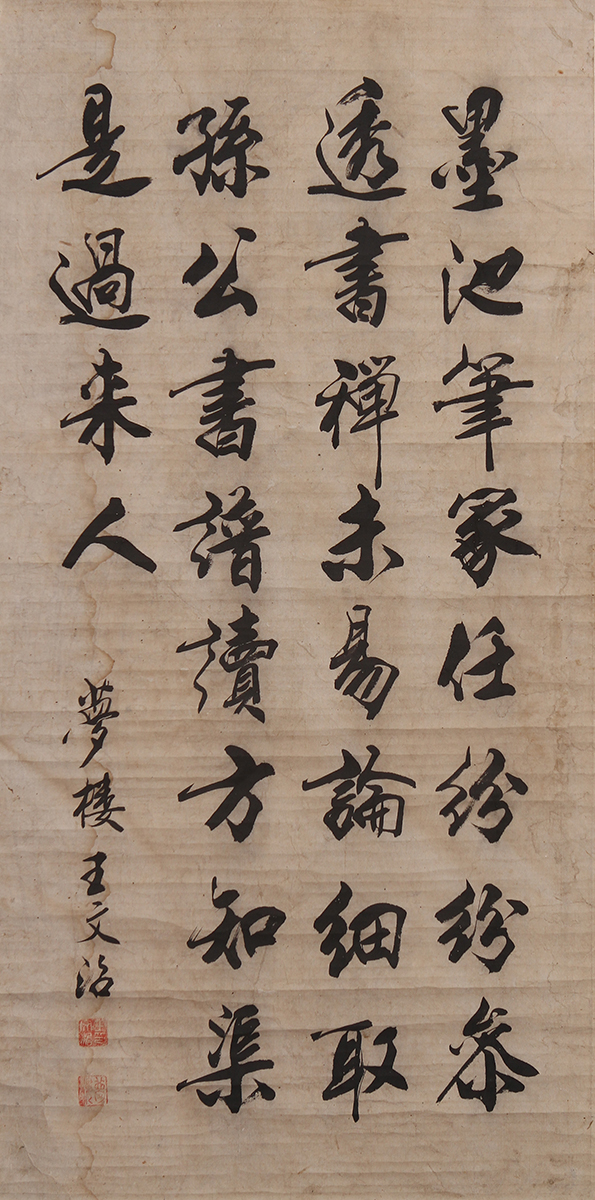 墨池筆冢任紛紛參
透書禪未易論細取
孫公書譜讀方知渠
是過來人
夢樓王文治